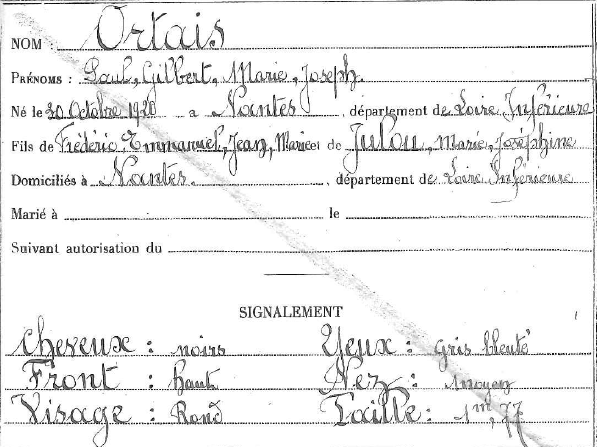 NOM : Ortais
PRÉNOMS : Paul, Gilbert, Marie, Joseph.
Né le 20 Octobre 1920 a Nantes, département de Loire Inférieure
Fils de Frédéric Emmanuel, Jean, Marie et de Julou, Marie, Joséphine
Domiciliés à Nantes., département de Loire Inférieure
Marié à le
Suivant autorisation du
SIGNALEMENT
Cheveux : noirs Yeux : gris bleuté
Front : haut Nez : moyen
Visage : Rond Taille : 1m,77